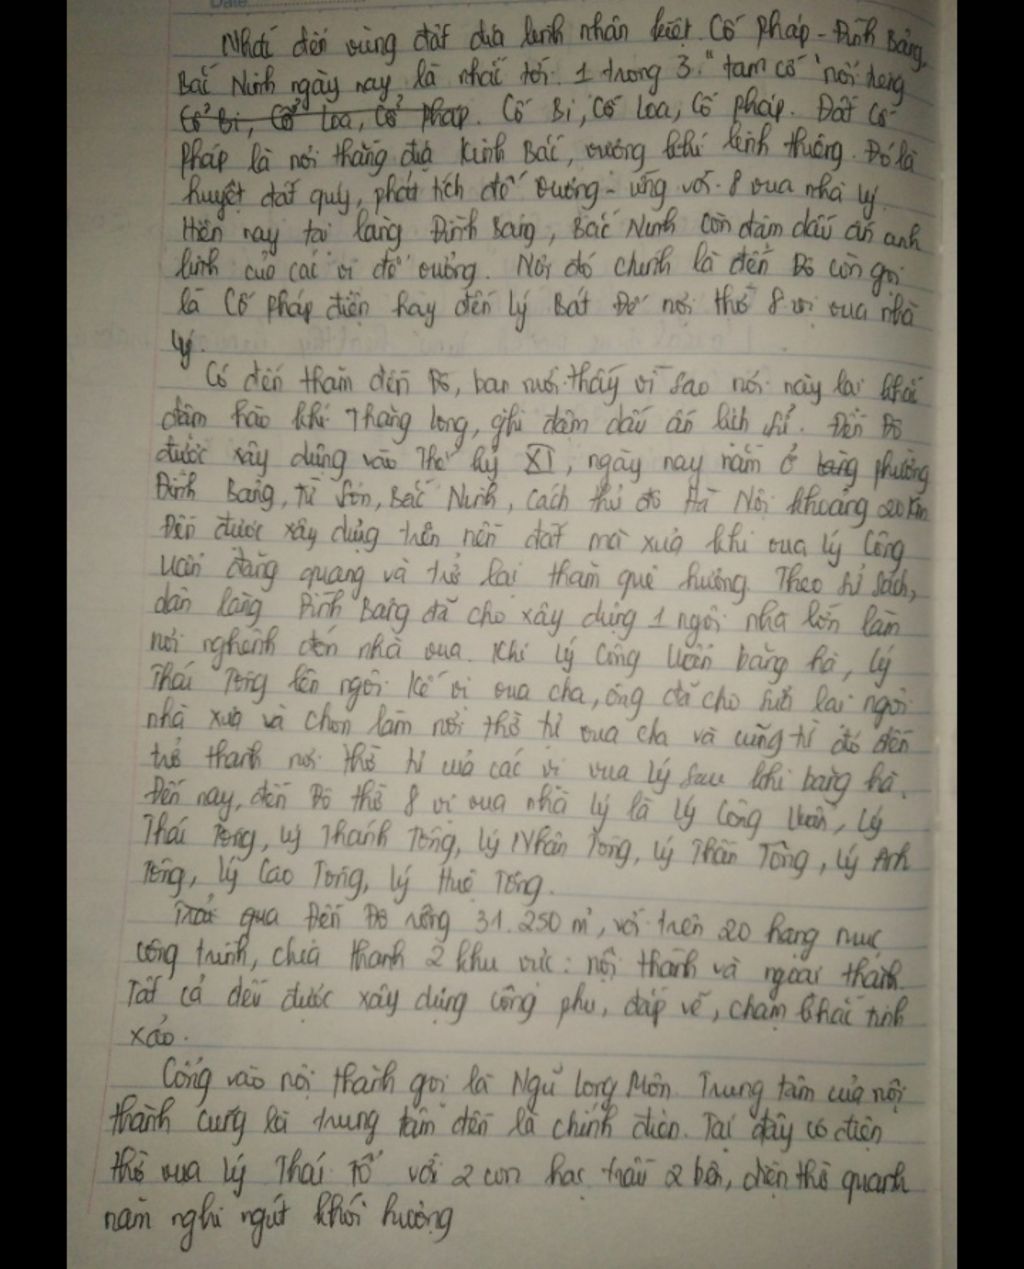 Nhắc đến vùng đất địa linh nhân kiệt Cổ Pháp - Đình Bảng,
Bắc Ninh ngày nay là nhắc tới 1 trong 3 "tam cổ" nổi tiếng
Cổ Bi, Cổ Loa, Cổ Pháp. Cổ Bi, Cổ Loa, Cổ Pháp. Đất Cổ
Pháp là nơi thắng địa Kinh Bắc, vượng khí linh thiêng. Đó là
huyệt đất quý, phát tích đế vương - ứng với 8 vua nhà Lý.
Hiện nay tại làng Đình Bảng, Bắc Ninh còn đậm dấu ấn anh
linh của các vị đế vương. Nơi đó chính là đền Đô còn gọi
là Cổ Pháp điện hay đền Lý Bát Đế nơi thờ 8 vị vua nhà
Lý.
Có đến thăm đền Đô, bạn mới thấy vì sao nơi này lại khắc
đậm hào khí Thăng Long, ghi đậm dấu ấn lịch sử. Đền Đô
được xây dựng vào Thế kỷ XI, ngày nay nằm ở làng phường
Đình Bảng, Từ Sơn, Bắc Ninh, cách thủ đô Hà Nội khoảng 20km
Đền được xây dựng trên nền đất mà xưa khi vua Lý Công
Uẩn đăng quang và trở lại thăm quê hương. Theo sử sách,
dân làng Đình Bảng đã cho xây dựng 1 ngôi nhà lớn làm
nơi nghênh đón nhà vua. Khi Lý Công Uẩn băng hà, Lý
Thái Tông lên ngôi kế vị vua cha, ông đã cho sửa lại ngôi
nhà xưa và chọn làm nơi thờ tự vua cha và cũng từ đó đền
trở thành nơi thờ tự của các vị vua Lý sau khi băng hà.
Đến nay, đền Đô thờ 8 vị vua nhà Lý là Lý Công Uẩn, Lý
Thái Tông, Lý Thánh Tông, Lý Nhân Tông, Lý Thần Tông, Lý Anh
Tông, Lý Cao Tông, Lý Huệ Tông.
Trải qua Đền Đô rộng 31.250 m², với trên 20 hạng mục
công trình, chia thành 2 khu vực: nội thành và ngoại thành.
Tất cả đều được xây dựng công phu, đáp vẽ, chạm khắc tinh
xảo.
Cổng vào nội thành gọi là Ngũ Long Môn. Trung tâm của nội
thành cũng là trung tâm đền là chính điện. Tại đây có điện
thờ vua Lý Thái Tổ với 2 con hạc trầu 2 bên, điện thờ quanh
năm nghi ngút khói hương